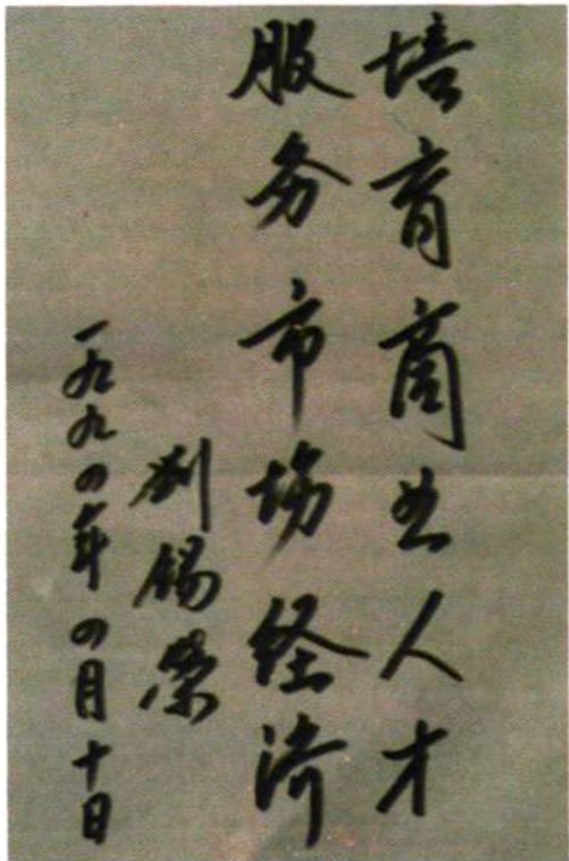 培育商业人才
服务市场经济
刘锡荣
一九九四年四月十日